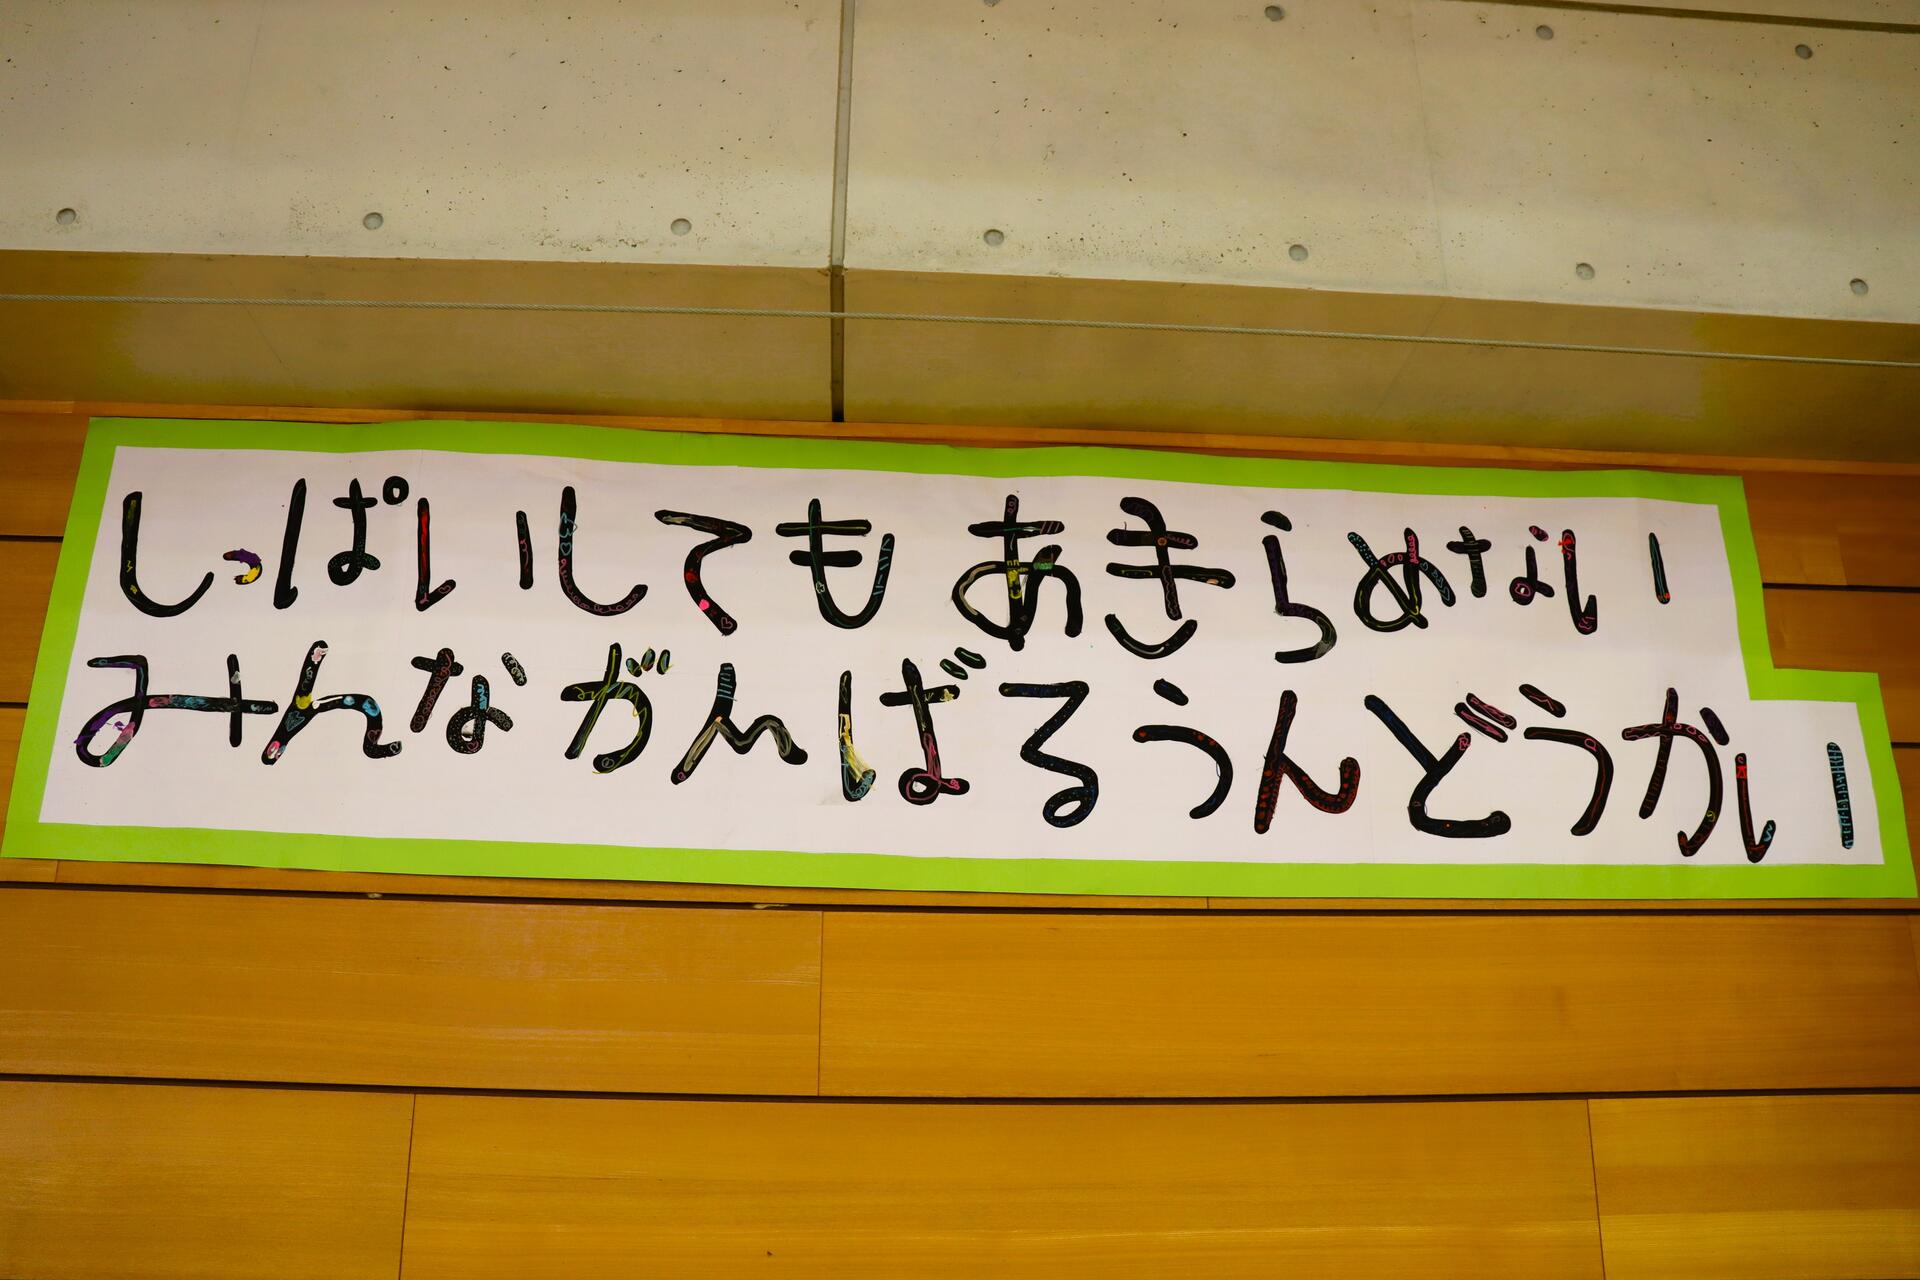 しっぱいしてもあきらめない
みんながんばるうんどうかい